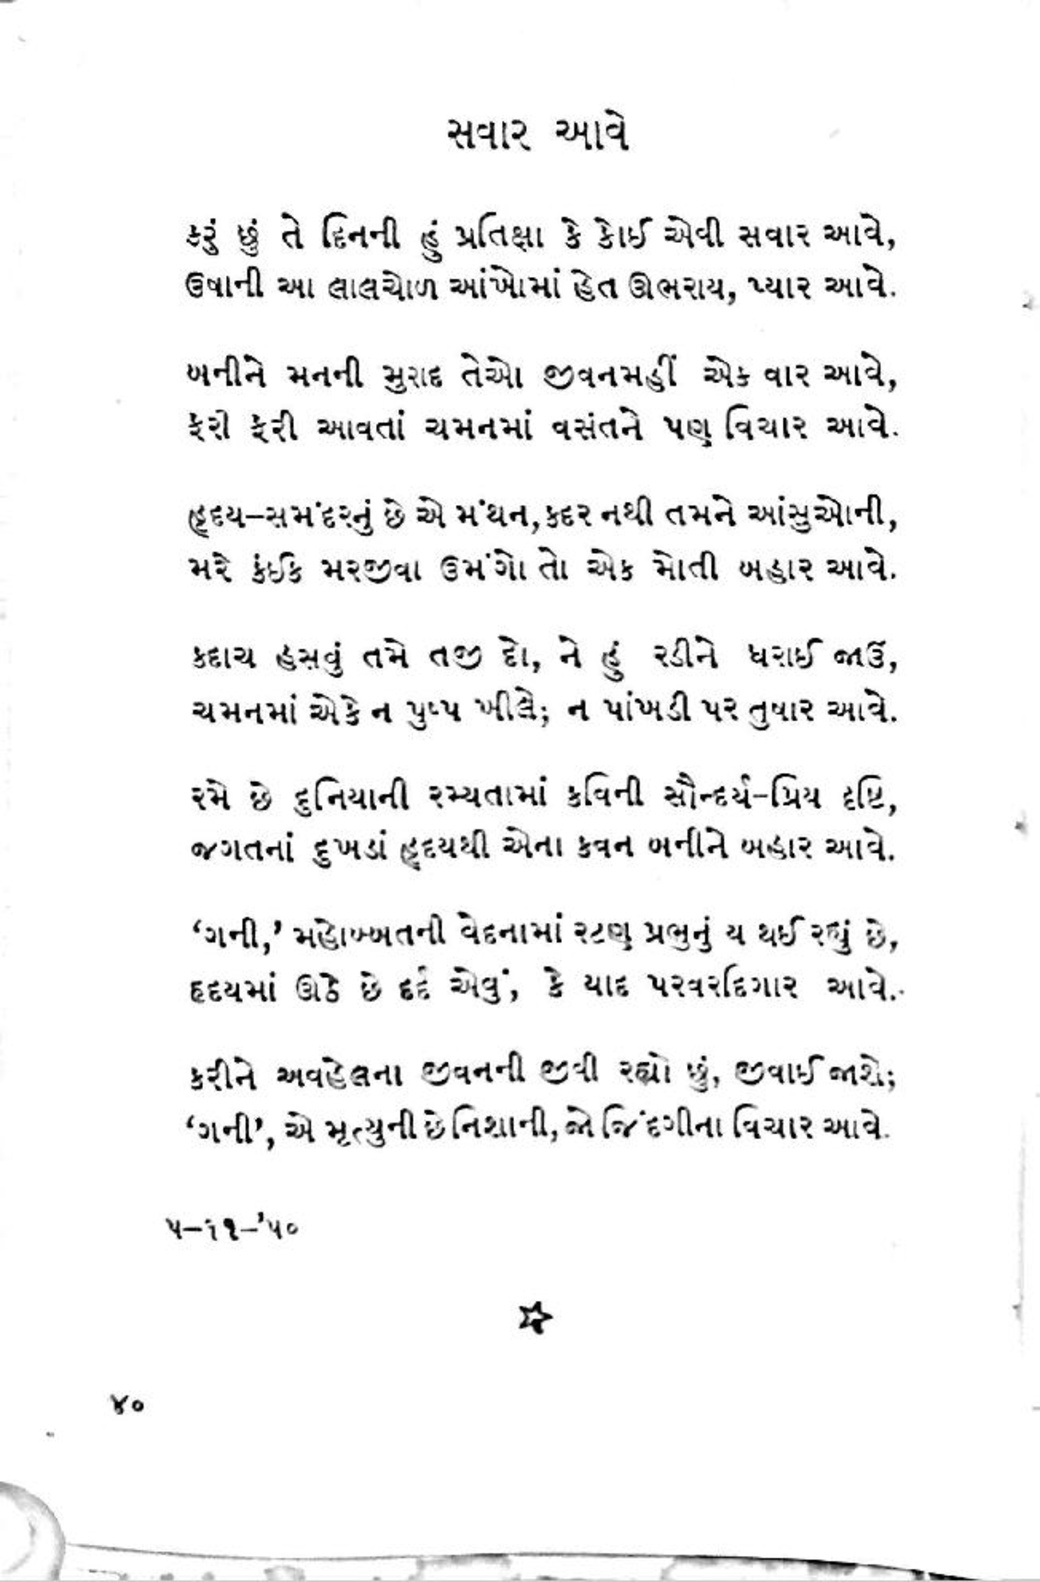 સવાર આવે
કરું છું તે દિનની હું પ્રતિક્ષા કે કોઈ એવી સવાર આવે,
ઉષાની આ લાલચોળ આંખોમાં હેત ઊભરાય, પ્યાર આવે.
બનીને મનની મુરાદ તેઓ જીવનમહીં એક વાર આવે,
ફરી ફરી આવતાં ચમનમાં વસંતને પણ વિચાર આવે.
હૃદય–સમંદરનું છે એ મંથન, કદર નથી તમને આંસુઓની,
મરે કંઈક મરજીવા ઉમંગો તો એક મોતી બહાર આવે.
કદાચ હસવું તમે તજી દો, ને હું રડીને ધરાઈ જાઉં,
ચમનમાં એકે ન પુષ્પ ખીલે; ન પાંખડી પર તુષાર આવે.
રમે છે દુનિયાની રમ્યતામાં કવિની સૌન્દર્ય-પ્રિય દૃષ્ટિ,
જગતનાં દુખડાં હૃદયથી એના કવન બનીને બહાર આવે.
‘ગની,’ મહોબ્બતની વેદનામાં રટણ પ્રભુનું ય થઈ રહ્યું છે,
હૃદયમાં ઊઠે છે દર્દ એવું, કે યાદ પરવરદિગાર આવે.
કરીને અવહેલના જીવનની જીવી રહ્યો છું, જીવાઈ જાશે;
‘ગની’, એ મૃત્યુની છે નિશાની, જો જિંદગીના વિચાર આવે.
૫–૧૧–’૫૦
૪૦